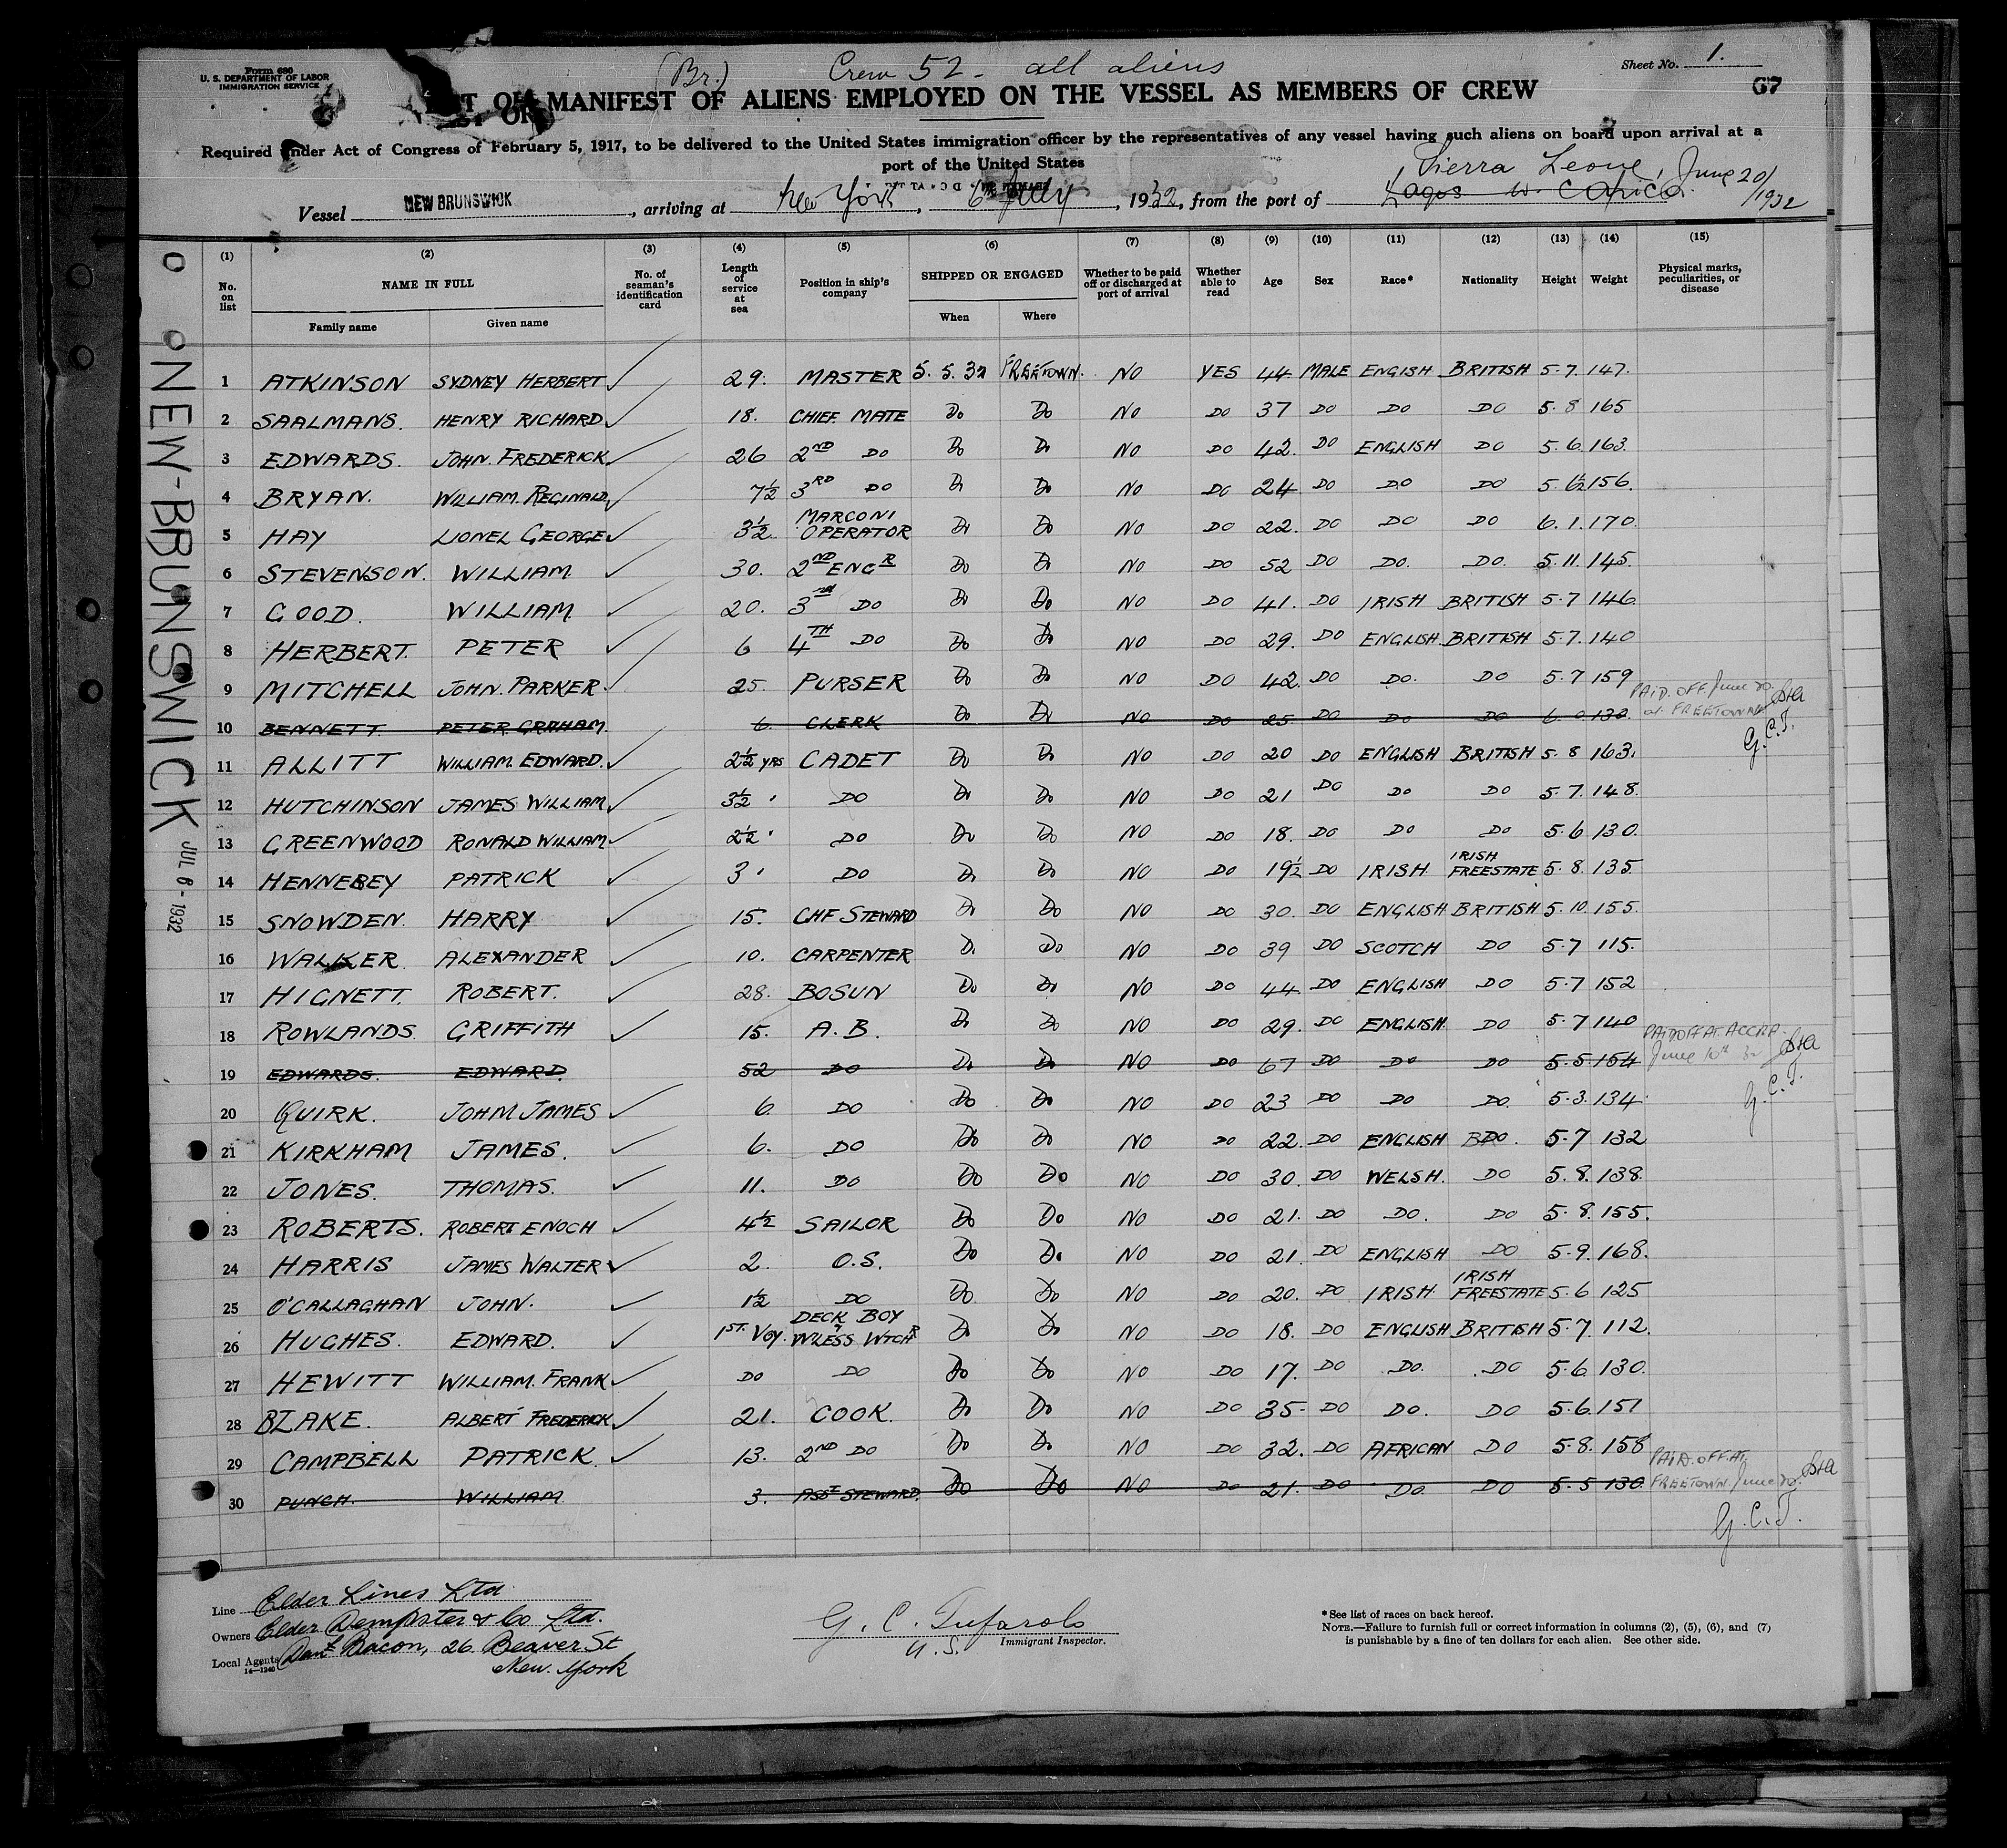 Form 680
U. S. DEPARTMENT OF LABOR
IMMIGRATION SERVICE
(Br.) Crew 52 - all aliens
Sheet No. 1.
67
OR MANIFEST OF ALIENS EMPLOYED ON THE VESSEL AS MEMBERS OF CREW
Required under Act of Congress of February 5, 1917, to be delivered to the United States immigration officer by the representatives of any vessel having such aliens on board upon arrival at a
port of the United States
Sierra Leone, June 20/1932
Vessel NEW BRUNSWICK, arriving at New York, 6 July, 1932, from the port of Lagos W. Africa
(1) (2) (3) (4) (5) (6) (7) (8) (9) (10) (11) (12) (13) (14) (15)
No. on list NAME IN FULL Family name Given name No. of seaman's identification card Length of service at sea Position in ship's company SHIPPED OR ENGAGED When Where Whether to be paid off or discharged at port of arrival Whether able to read Age Sex Race* Nationality Height Weight Physical marks, peculiarities, or disease
1 ATKINSON SYDNEY HERBERT 29. MASTER 5.5.32 FREETOWN. NO YES 44 MALE ENGISH BRITISH 5.7. 147.
2 SAALMANS. HENRY RICHARD 18. CHIEF MATE Do Do NO DO 37 DO DO DO 5.8 165
3 EDWARDS. JOHN. FREDERICK 26 2ND DO Do Do NO DO 42. DO ENGLISH DO 5.6. 163.
4 BRYAN. WILLIAM. REGINALD. 7½ 3RD DO Do Do NO DO 24 DO DO DO 5.6½ 156.
5 HAY LIONEL GEORGE 3½ MARCONI OPERATOR Do Do NO DO 22. DO DO DO 6.1. 170.
6 STEVENSON. WILLIAM. 30. 2ND ENGR Do Do NO DO 52 DO DO. DO. 5.11. 145.
7 GOOD. WILLIAM. 20. 3RD DO Do Do NO DO 41. DO IRISH BRITISH 5.7 146.
8 HERBERT. PETER 6 4TH DO Do Do NO DO 29. DO ENGLISH BRITISH 5.7. 140
9 MITCHELL JOHN. PARKER. 25. PURSER Do Do NO DO 42. DO DO. DO 5.7 159
10 BENNETT PETER GRAHAM. 6. CLERK Do Do NO DO 25 DO DO DO 6.0 132. PAID. OFF. June 20. at FREETOWN G.C.T.
11 ALLITT WILLIAM. EDWARD. 2½ YRS CADET Do Do NO DO 20 DO ENGLISH BRITISH 5.8 163.
12 HUTCHINSON JAMES WILLIAM 3½ " DO Do Do NO DO 21 DO DO DO 5.7. 148.
13 GREENWOOD RONALD WILLIAM 2½ " DO Do Do NO DO 18. DO DO DO 5.6 130.
14 HENNEBEY PATRICK 3 " DO Do Do NO DO 19½ DO IRISH IRISH FREESTATE 5.8. 135.
15 SNOWDEN. HARRY 15. CHF STEWARD Do Do NO DO 30. DO ENGLISH BRITISH 5.10. 155.
16 WALKER ALEXANDER 10. CARPENTER Do Do NO DO 39 DO SCOTCH DO 5.7 115.
17 HIGNETT. ROBERT. 28. BOSUN Do Do NO DO 44 DO ENGLISH DO 5.7 152
18 ROWLANDS. GRIFFITH 15. A.B. Do Do NO DO 29. DO ENGLISH DO 5.7 140
19 EDWARDS. EDWARD. 52 DO Do Do NO DO 67 DO DO DO 5.5 154 PAID OFF AT. ACCRA. June 10th 32 G.C.T.
20 QUIRK. JOHN JAMES 6. DO Do Do NO DO 23 DO DO DO. 5.3. 134.
21 KIRKHAM JAMES. 6. DO Do Do NO DO 22. DO ENGLISH DO. 5.7 132
22 JONES. THOMAS. 11. DO Do Do NO DO 30. DO WELSH. DO 5.8. 138.
23 ROBERTS. ROBERT ENOCH 4½ SAILOR Do Do NO DO 21. DO DO. DO 5.8. 155.
24 HARRIS JAMES WALTER 2. O.S. Do Do NO DO 21. DO ENGLISH DO 5.9. 168.
25 O'CALLAGHAN JOHN. 1½ DO Do Do NO DO 20. DO IRISH IRISH FREESTATE 5.6 125
26 HUGHES. EDWARD. 1ST. VOY. DECK BOY & W'LESS WTCHR Do Do NO DO 18. DO ENGLISH BRITISH 5.7. 112.
27 HEWITT WILLIAM. FRANK DO DO Do Do NO DO 17. DO DO. DO 5.6. 130.
28 BLAKE. ALBERT FREDERICK 21. COOK. Do Do NO DO 35. DO DO. DO 5.6. 151
29 CAMPBELL PATRICK. 13. 2ND DO Do Do NO DO 32. DO AFRICAN DO 5.8. 158
30 PUNCH. WILLIAM 3. ASST STEWARD. Do Do NO DO 21. DO DO. DO 5.5 130. PAID. OFF. AT FREETOWN June 20. G.C.T.
NEW-BRUNSWICK
JUL 6 - 1932
Line Elder Lines Ltd
Owners Elder Dempster & Co Ltd.
Local Agents Danl Bacon, 26. Beaver St
New. York
14—1240
G. C. Tufarolo
U.S. Immigrant Inspector.
*See list of races on back hereof.
NOTE.—Failure to furnish full or correct information in columns (2), (5), (6), and (7)
is punishable by a fine of ten dollars for each alien. See other side.